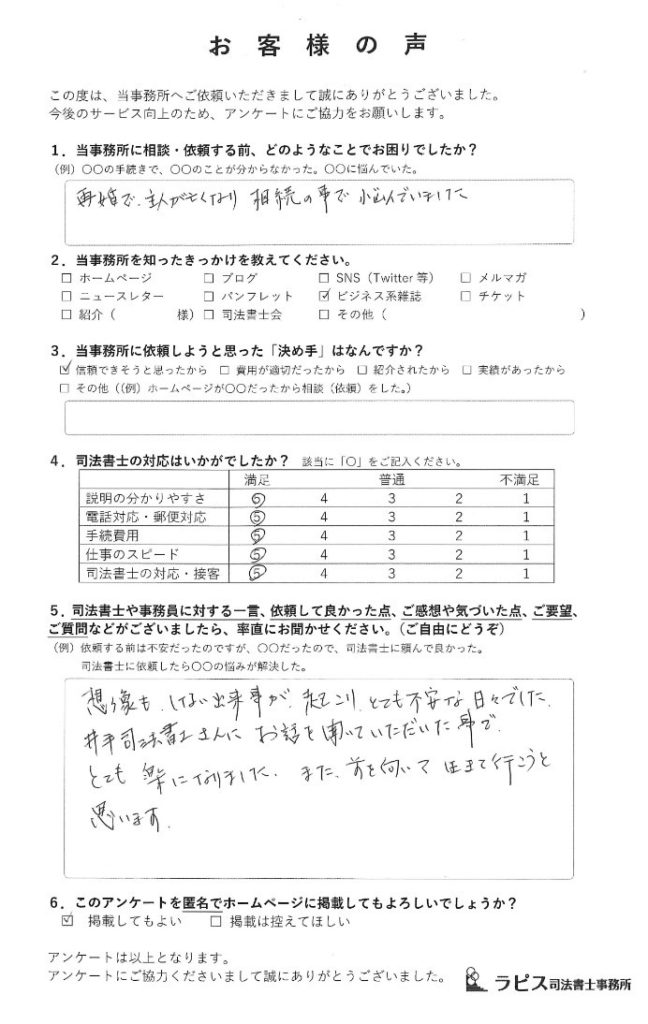 お客様の声
この度は、当事務所へご依頼いただきまして誠にありがとうございました。
今後のサービス向上のため、アンケートにご協力をお願いします。
1．当事務所に相談・依頼する前、どのようなことでお困りでしたか？
（例）〇〇の手続きで、〇〇のことが分からなかった。〇〇に悩んでいた。
再婚で、主人が亡くなり 相続の事で 悩んでいました
2．当事務所を知ったきっかけを教えてください。
□ ホームページ □ ブログ □ SNS（Twitter 等） □ メルマガ
□ ニュースレター □ パンフレット ☑ ビジネス系雑誌 □ チケット
□ 紹介（ 様） □ 司法書士会 □ その他（ ）
3．当事務所に依頼しようと思った「決め手」はなんですか？
☑ 信頼できそうと思ったから □ 費用が適切だったから □ 紹介されたから □ 実績があったから
□ その他（（例）ホームページが〇〇だったから相談（依頼）をした。）
4．司法書士の対応はいかがでしたか？ 該当に「〇」をご記入ください。
満足 普通 不満足
説明の分かりやすさ ⑤ 4 3 2 1
電話対応・郵便対応 ⑤ 4 3 2 1
手続費用 ⑤ 4 3 2 1
仕事のスピード ⑤ 4 3 2 1
司法書士の対応・接客 ⑤ 4 3 2 1
5．司法書士や事務員に対する一言、依頼して良かった点、ご感想や気づいた点、ご要望、
ご質問などがございましたら、率直にお聞かせください。（ご自由にどうぞ）
（例）依頼する前は不安だったのですが、〇〇だったので、司法書士に頼んで良かった。
司法書士に依頼したら〇〇の悩みが解決した。
想像も、しない出来事が、起こり、とても不安な日々でした、
井手司法書士さんに お話を聞いていただいた事で、
とても 楽になりました、また、前を向いて 生きて行こうと
思います、
6．このアンケートを匿名でホームページに掲載してもよろしいでしょうか？
☑ 掲載してもよい □ 掲載は控えてほしい
アンケートは以上となります。
アンケートにご協力くださいまして誠にありがとうございました。
ラピス司法書士事務所